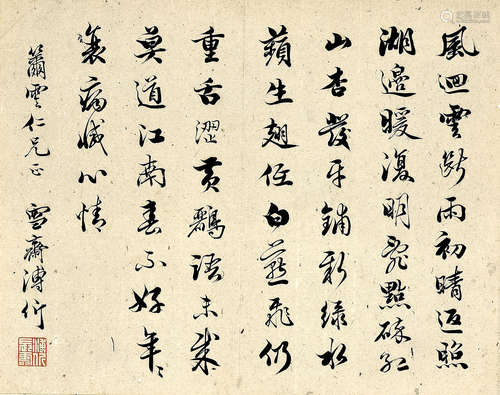 風迴雲斷雨初晴返照
湖邊暖復明亂點碎紅
山杏發平鋪新綠水
蘋生翅低白燕飛仍
重舌澀黃鸝語未成
莫道江南春不好年〻
衰病減心情
籋雲仁兄正 雪齋溥伒